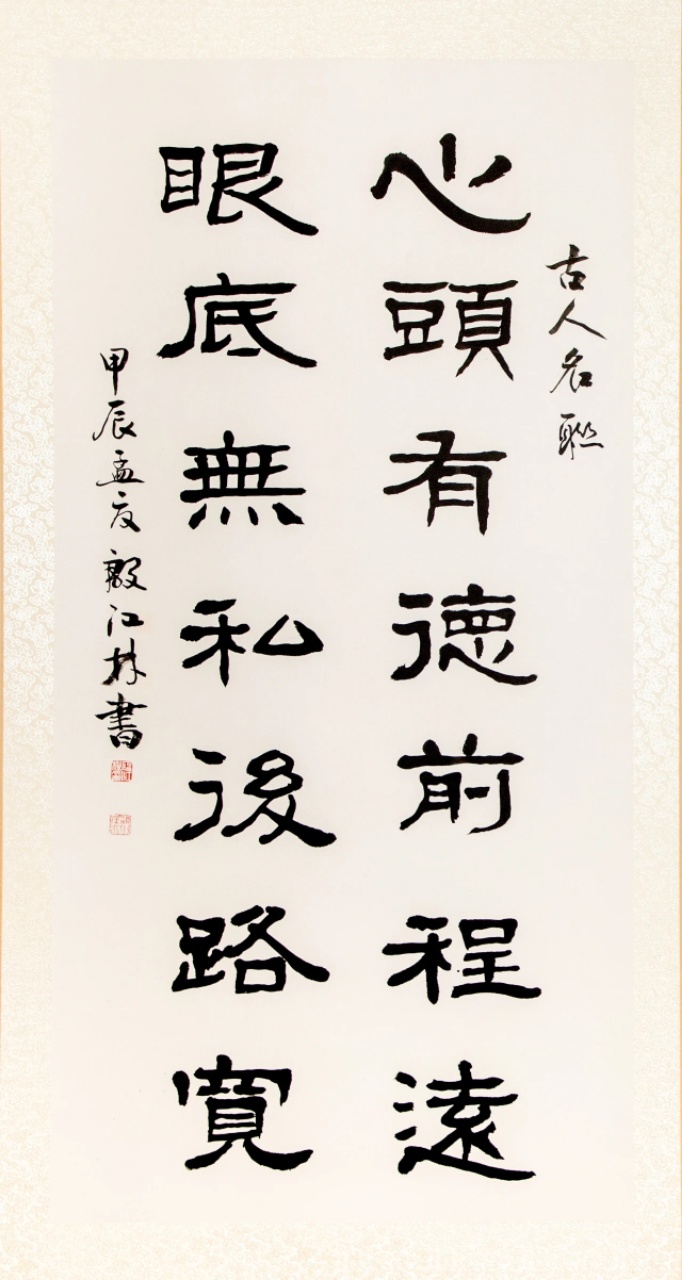 古人名聯
心頭有德前程遠
眼底無私後路寬
甲辰孟夏江林書